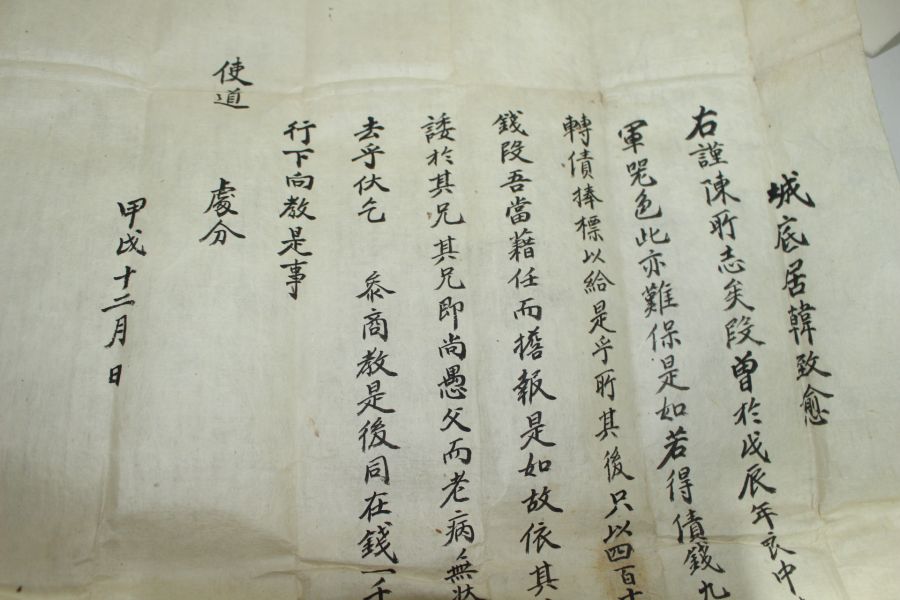 城底居韓致愈
右謹陳所志矣段曾於戊辰年良中
軍兕色此亦難保是如若得債錢九
轉債捧標以給是乎所其後只以四百十
錢段吾當藉任而擔報是如故依其
諉於其兄其兄卽尚愚父而老病無狀
去乎伏乞 叅商教是後同在錢一千
行下向教是事
使道 處分
甲戌十二月 日